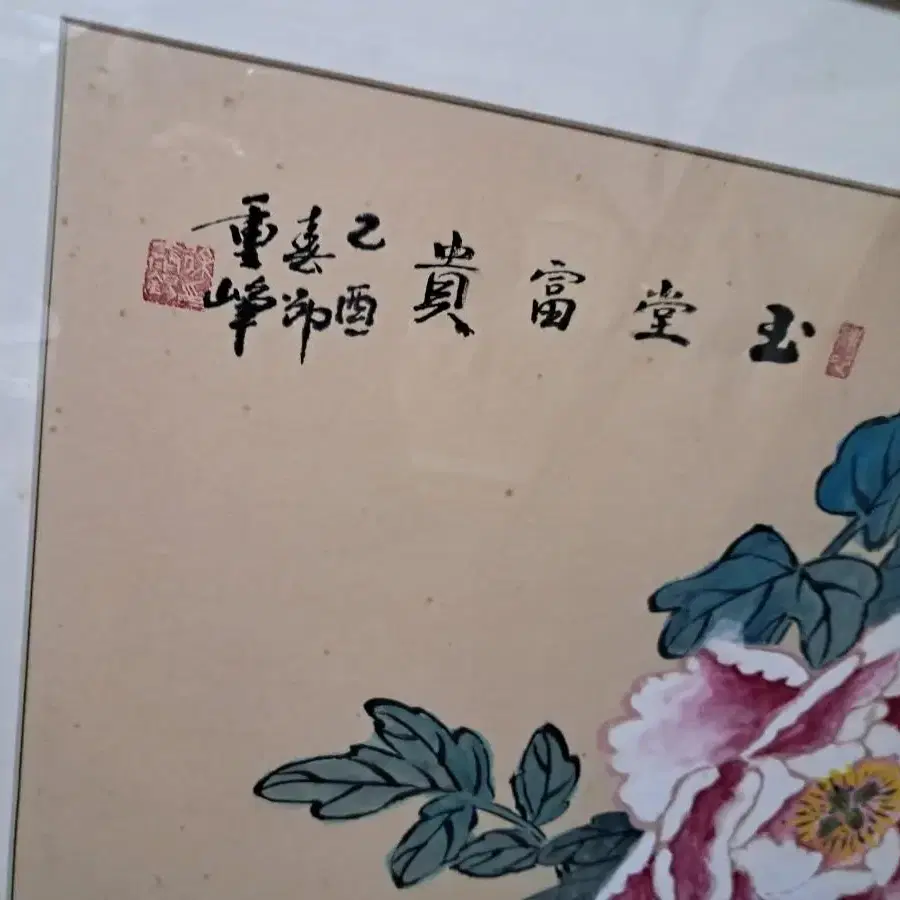 玉堂富貴
乙酉
春節
重峰